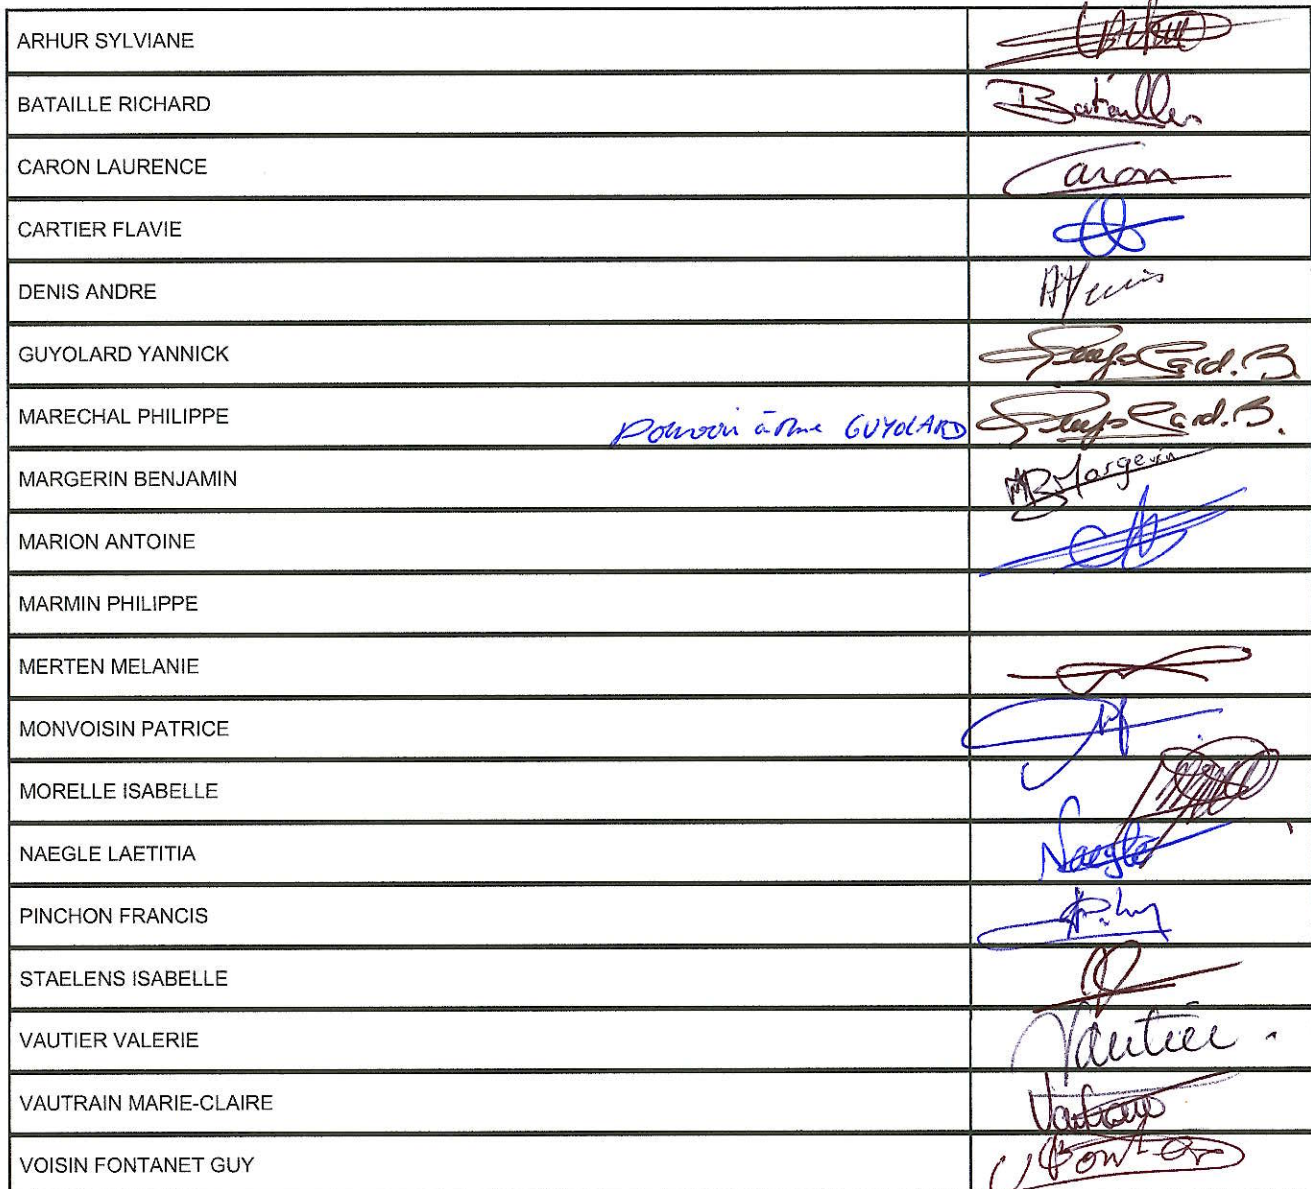 ARHUR SYLVIANE
BATAILLE RICHARD Bataille
CARON LAURENCE Caron
CARTIER FLAVIE
DENIS ANDRE
GUYOLARD YANNICK
MARECHAL PHILIPPE Pouvoir à Mme GUYOLARD
MARGERIN BENJAMIN Margerin
MARION ANTOINE
MARMIN PHILIPPE
MERTEN MELANIE
MONVOISIN PATRICE
MORELLE ISABELLE
NAEGLE LAETITIA Naegle
PINCHON FRANCIS
STAELENS ISABELLE
VAUTIER VALERIE Vautier
VAUTRAIN MARIE-CLAIRE
VOISIN FONTANET GUY